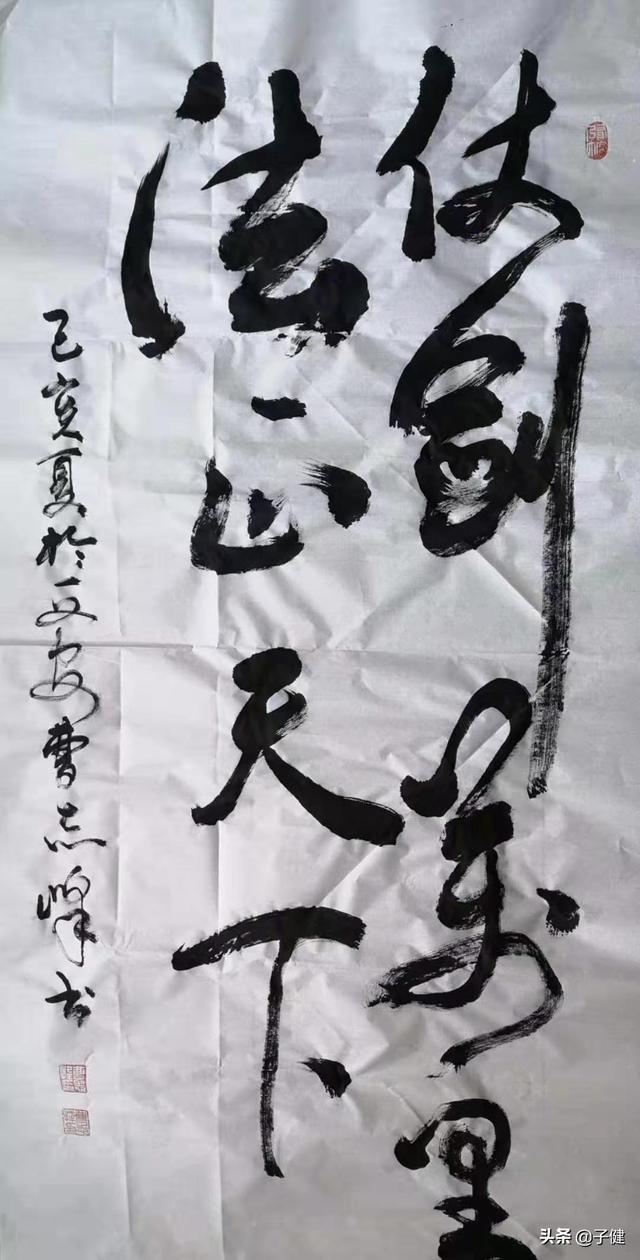 仗剑万里
法正天下
己亥夏於文安曹志峰书
头条@子健